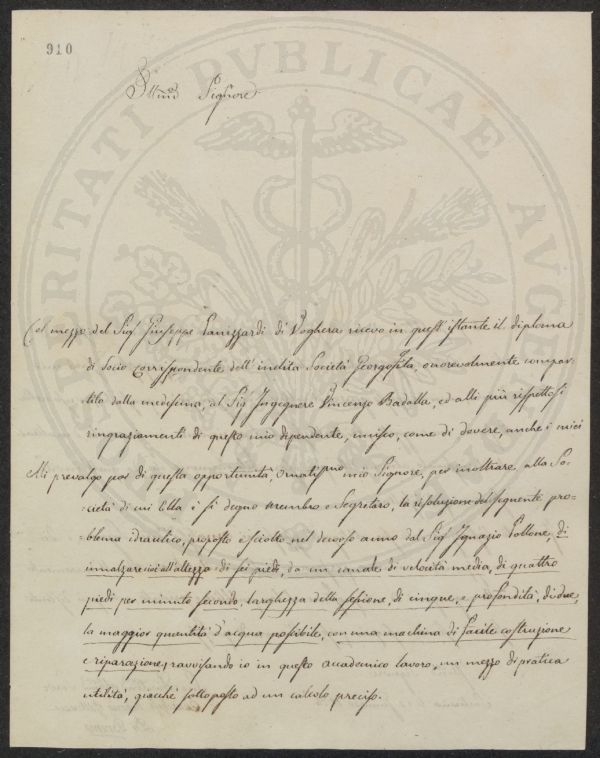 910
PROSPERITATI PVBLICAE AVGENDAE
Ill.mo Signore
Col mezzo del Sig.r Giuseppe Panizzardi di Voghera ricevo in quest'istante il diploma
di Socio corrispondente dell'inclita Società Georgofila, onorevolmente compar-
tito dalla medesima, al Sig.r Ingegnere Vincenzo Badalla, ed alli più rispettosi
ringraziamenti di questo mio dipendente, unisco, come di dovere, anche i miei
Mi prevalgo poi di questa opportunità, Ornatis.mo mio Signore, per inoltrare alla So-
cietà di cui Ella è sì degno membro e Segretaro, la risoluzione del seguente pro-
blema idraulico, proposto e sciolto nel decorso anno dal Sig.r Ignazio Pollone, di
innalzare cioè all'altezza di sei piedi, da un canale di velocità media, di quattro
piedi per minuto secondo, larghezza della sezione, di cinque, e profondità, di due,
la maggior quantità d'acqua possibile, con una machina di facile costruzione
e riparazione, ravvisando io in questo accademico lavoro, un mezzo di pratica
utilità, giacché sottoposto ad un calcolo preciso.